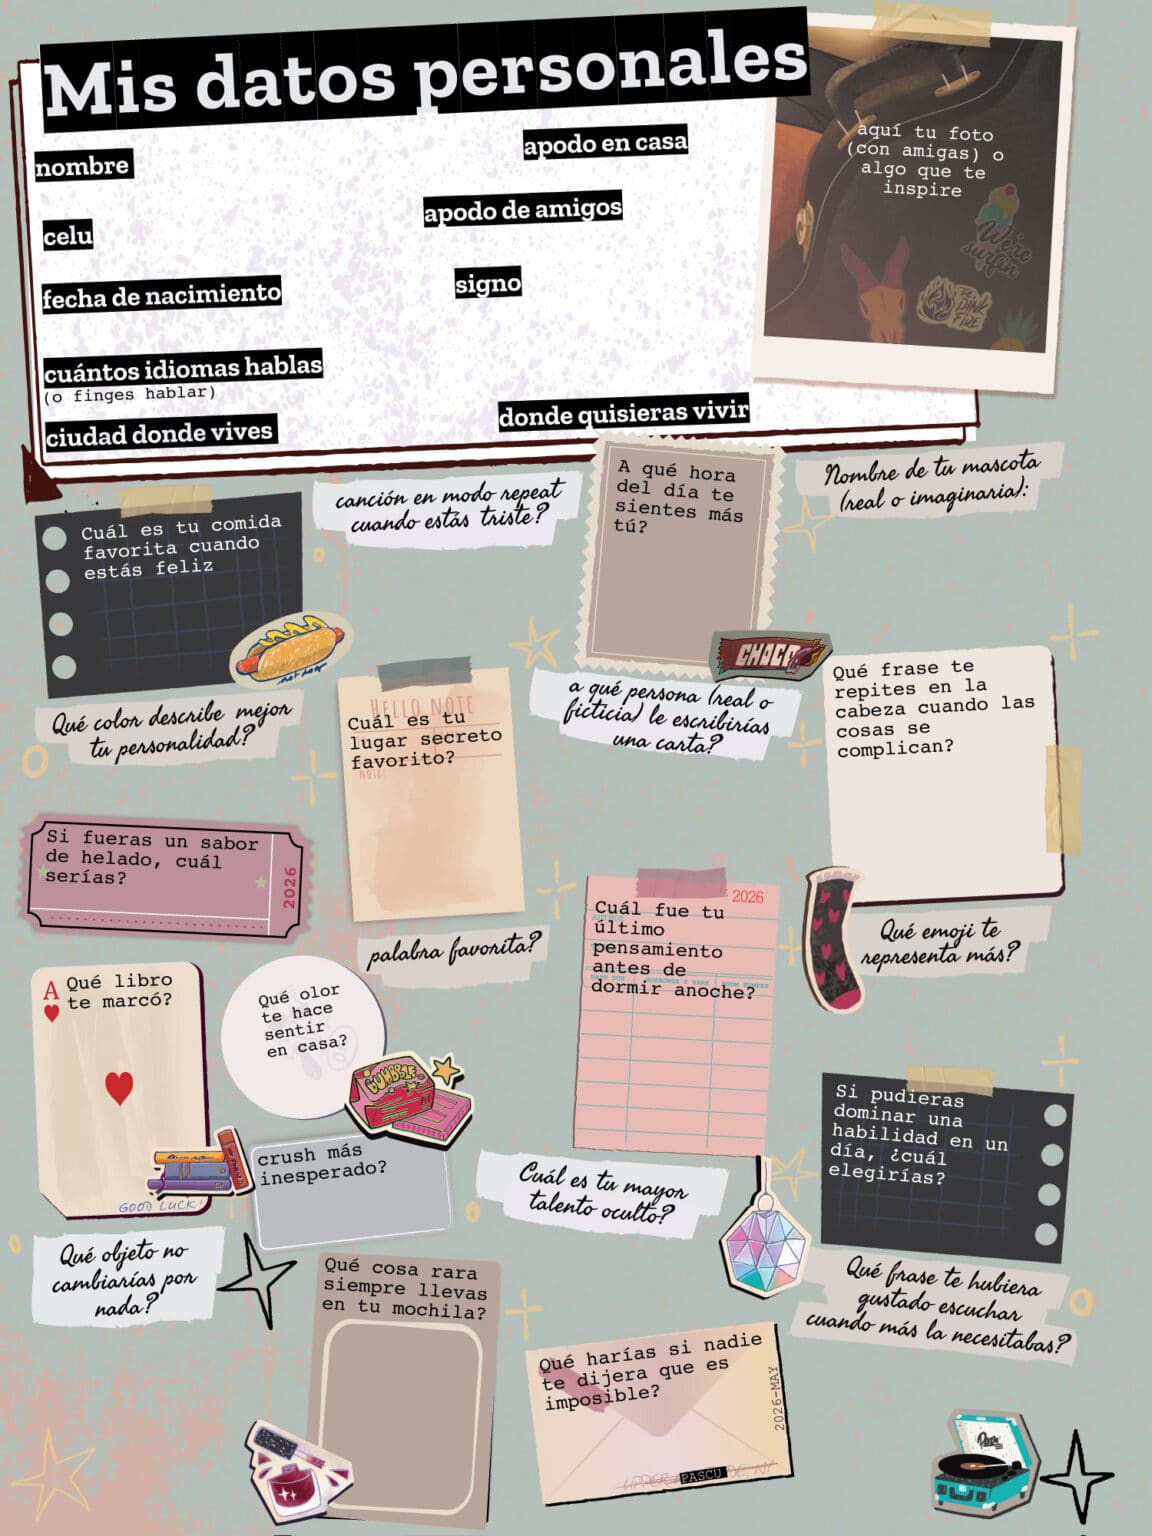 Mis datos personales
nombre
apodo en casa
celu
apodo de amigos
fecha de nacimiento
signo
cuántos idiomas hablas
(o finges hablar)
ciudad donde vives
donde quisieras vivir
aquí tu foto
(con amigas) o
algo que te
inspire
We're
surfin
FIRE
Cuál es tu comida
favorita cuando
estás feliz
hot dog
canción en modo repeat
cuando estás triste?
A qué hora
del día te
sientes más
tú?
CHOCO
Nombre de tu mascota
(real o imaginaria):
Qué color describe mejor
tu personalidad?
HELLO NOTE
Cuál es tu
lugar secreto
favorito?
NOTE
a qué persona (real o
ficticia) le escribirías
una carta?
Qué frase te
repites en la
cabeza cuando las
cosas se
complican?
Si fueras un sabor
de helado, cuál
serías?
2026
palabra favorita?
2026
AUTHOR
Cuál fue tu
último
pensamiento
antes de
dormir anoche?
BORROWER'S NAME
ROOM NUMBER
Qué emoji te
representa más?
A
Qué libro
te marcó?
GOOD LUCK!
Qué olor
te hace
sentir
en casa?
crush más
inesperado?
Cuál es tu mayor
talento oculto?
Si pudieras
dominar una
habilidad en un
día, ¿cuál
elegirías?
Qué objeto no
cambiarías por
nada?
Qué cosa rara
siempre llevas
en tu mochila?
Qué harías si nadie
te dijera que es
imposible?
2026-MAY
UPPER PASCU DE, NY
Qué frase te hubiera
gustado escuchar
cuando más la necesitabas?